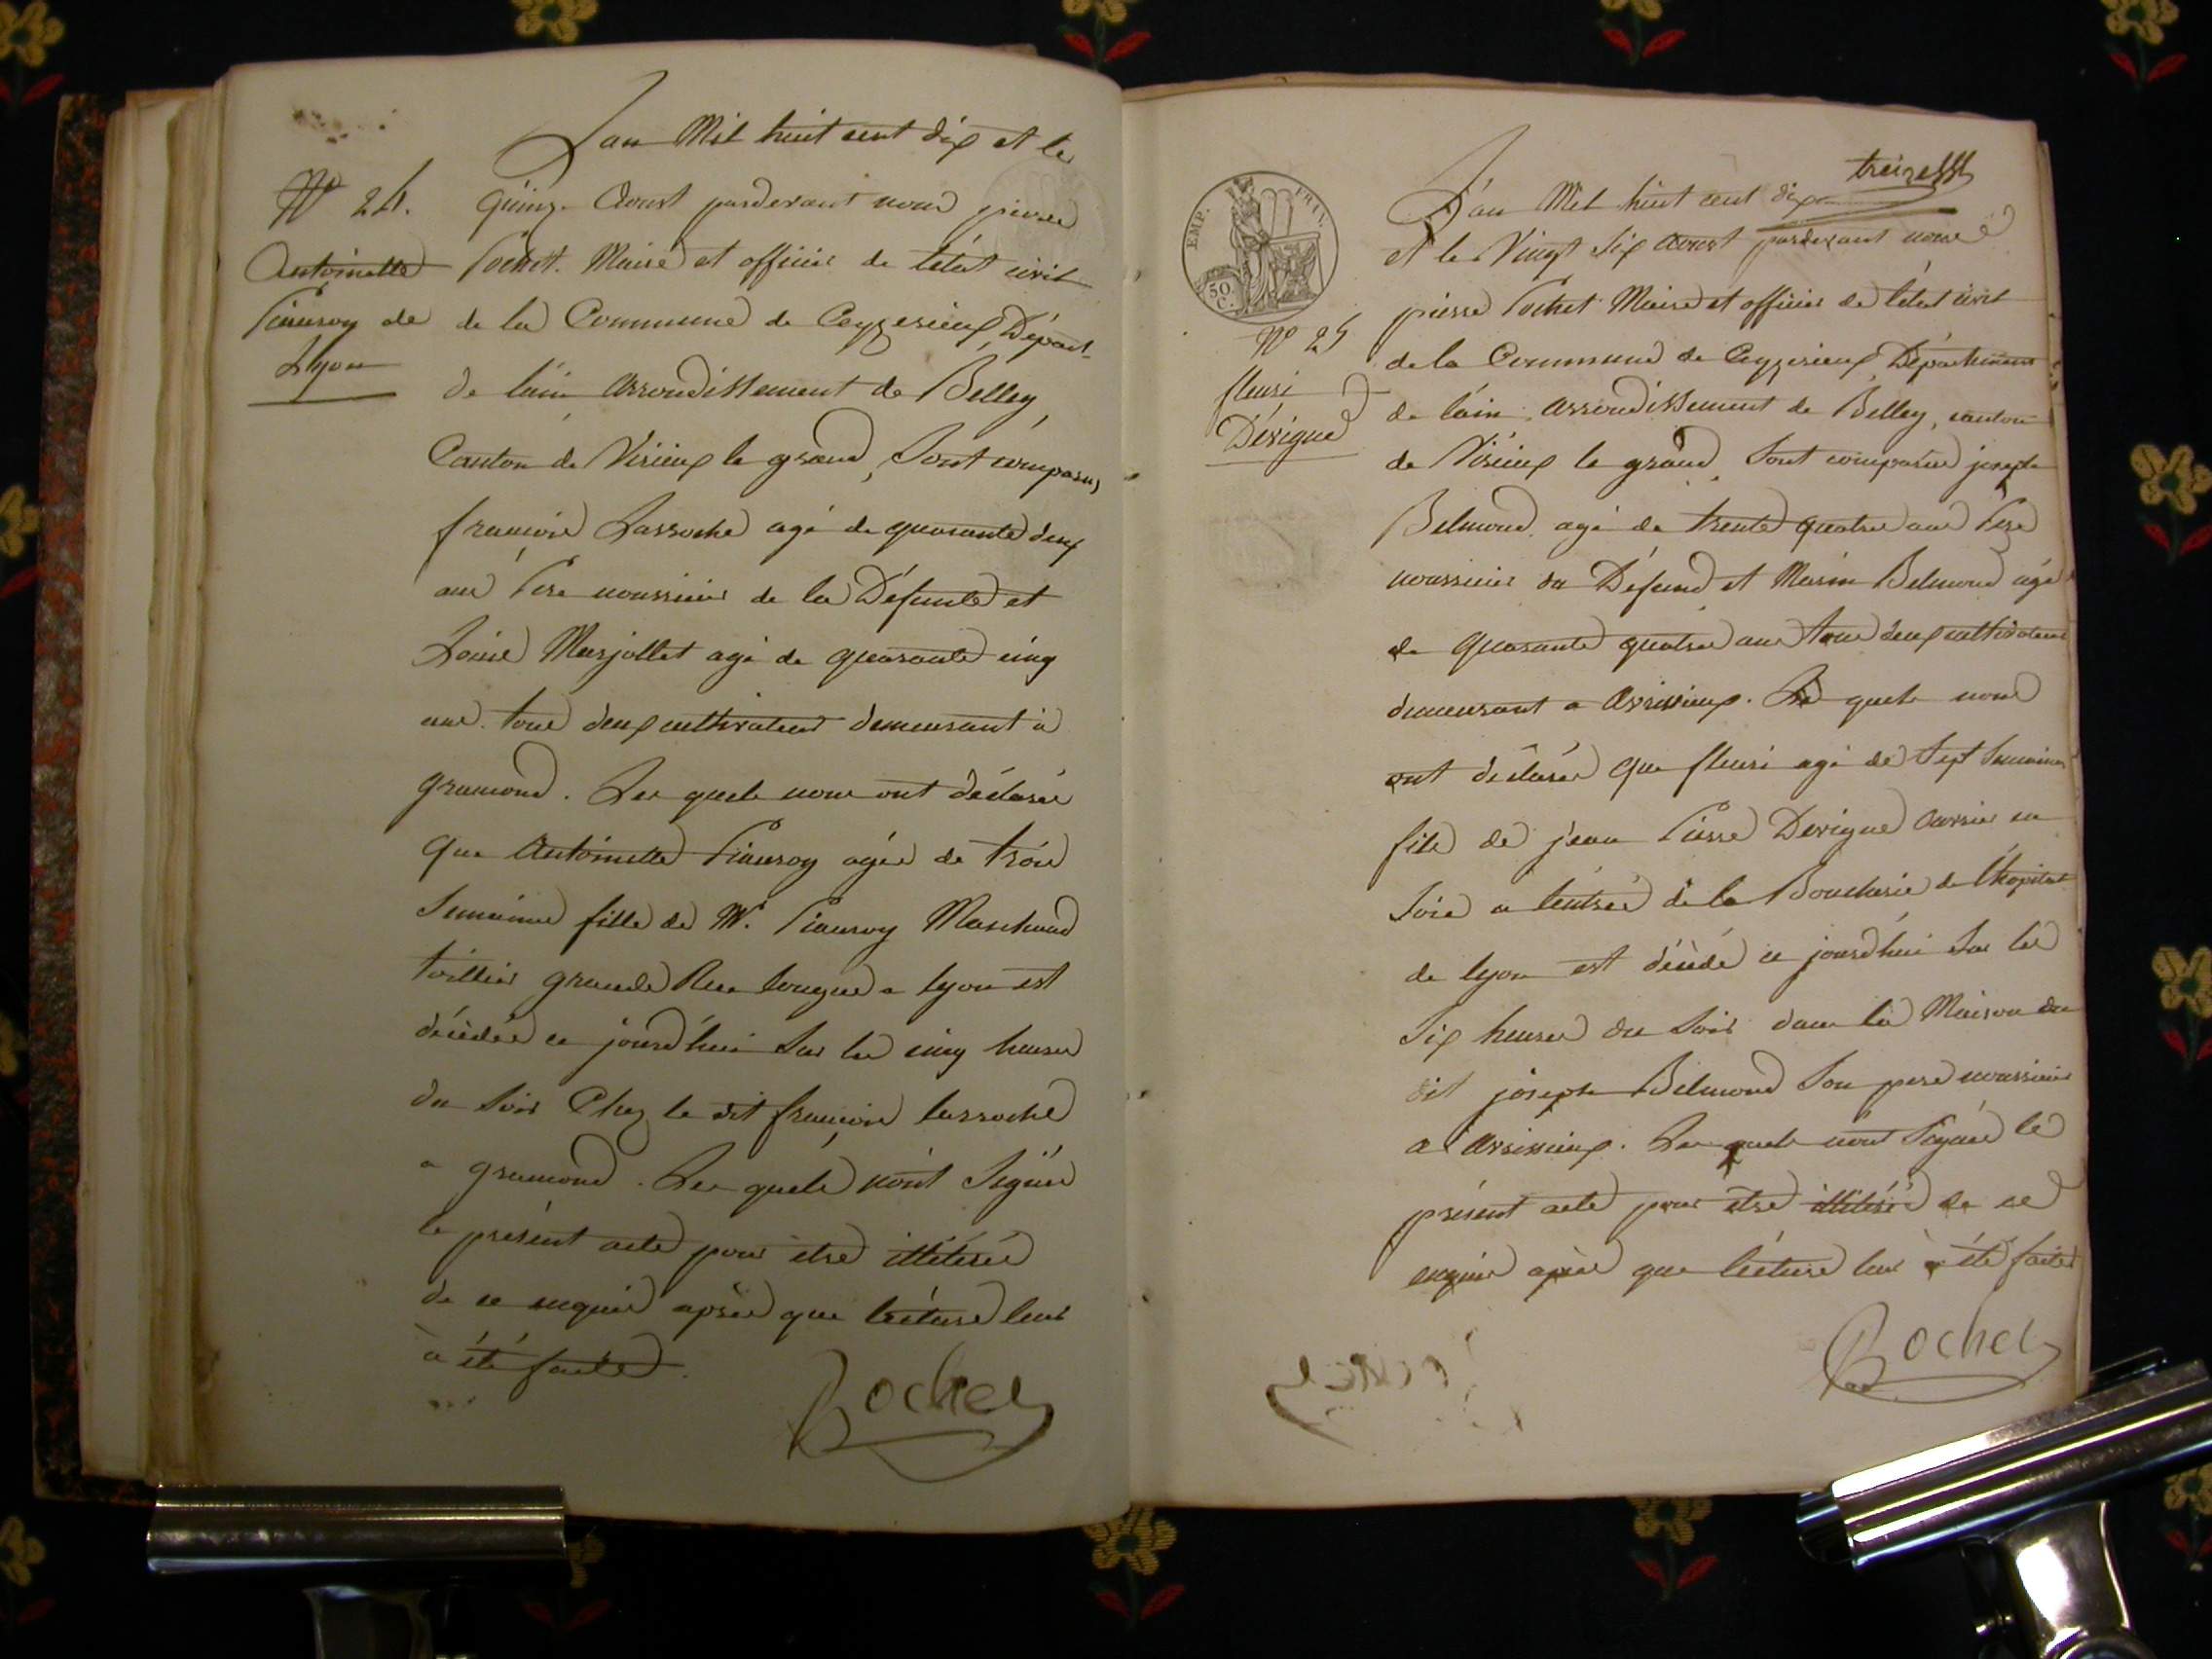 Lan Mil huit cent dix et le
N° 24.
quinze Aoust pardevant nous pierre
Antoinette
Pochet. Maire et officier de l'état civil
de
de la Commune de Ceyzerieux, Départ.
Lyon
de l'ain arrondissement de Belley,
Canton de Virieux le grand, Sont comparus
françois Larroche agé de quarante deux
ans Pere nourricier de la Défunte et
Louis Marjollet agé de quarante cinq
ans. tous deux cultivateurs demeurant à
gramond. Les quels nous ont déclaré
que Antoinette agée de trois
Semaines fille de Mr. Marchand
toillier grande Rue longue a lyon est
décédée ce jourd'hui Sur les cinq heures
du Soir Chez le dit françois larroche
a gramond. Les quels n'ont Signés
le présent acte pour être illitérés
de ce enquis après que lécture leur
à été faite.
Pochet
treize
L'an Mil huit cent dix
et le Vingt Six Aoust pardevant nous
EMP. FRAN.
50 C.
pierre Pochet Maire et officier de l'état civil
N° 25
de la Commune de Ceyzerieux Département
fleuri
de l'ain arrondissement de Belley, canton
Dévigne
de Virieux le grand, Sont comparus joseph
Belmond agé de trente quatre ans Pere
nourricier du Défund et Marin Belmond agé
de quarante quatre ans tous deux cultivateurs
demeurant a Avrissieux. Les quels nous
ont déclarés que fleuri agé de Sept Semaines
fils de jean Pierre Devigne ouvrier en
Soie a l'entrée de la Boucherie de l'hopital
de lyon est décédé ce jourd'hui Sur les
Six heures du Soir dans la Maison du
dit joseph Belmond Son pere nourricier
a Avrissieux. Les quels n'ont Signés le
présent acte pour être illitérés de ce
enquis après que lécture leur à été faite
Pochet